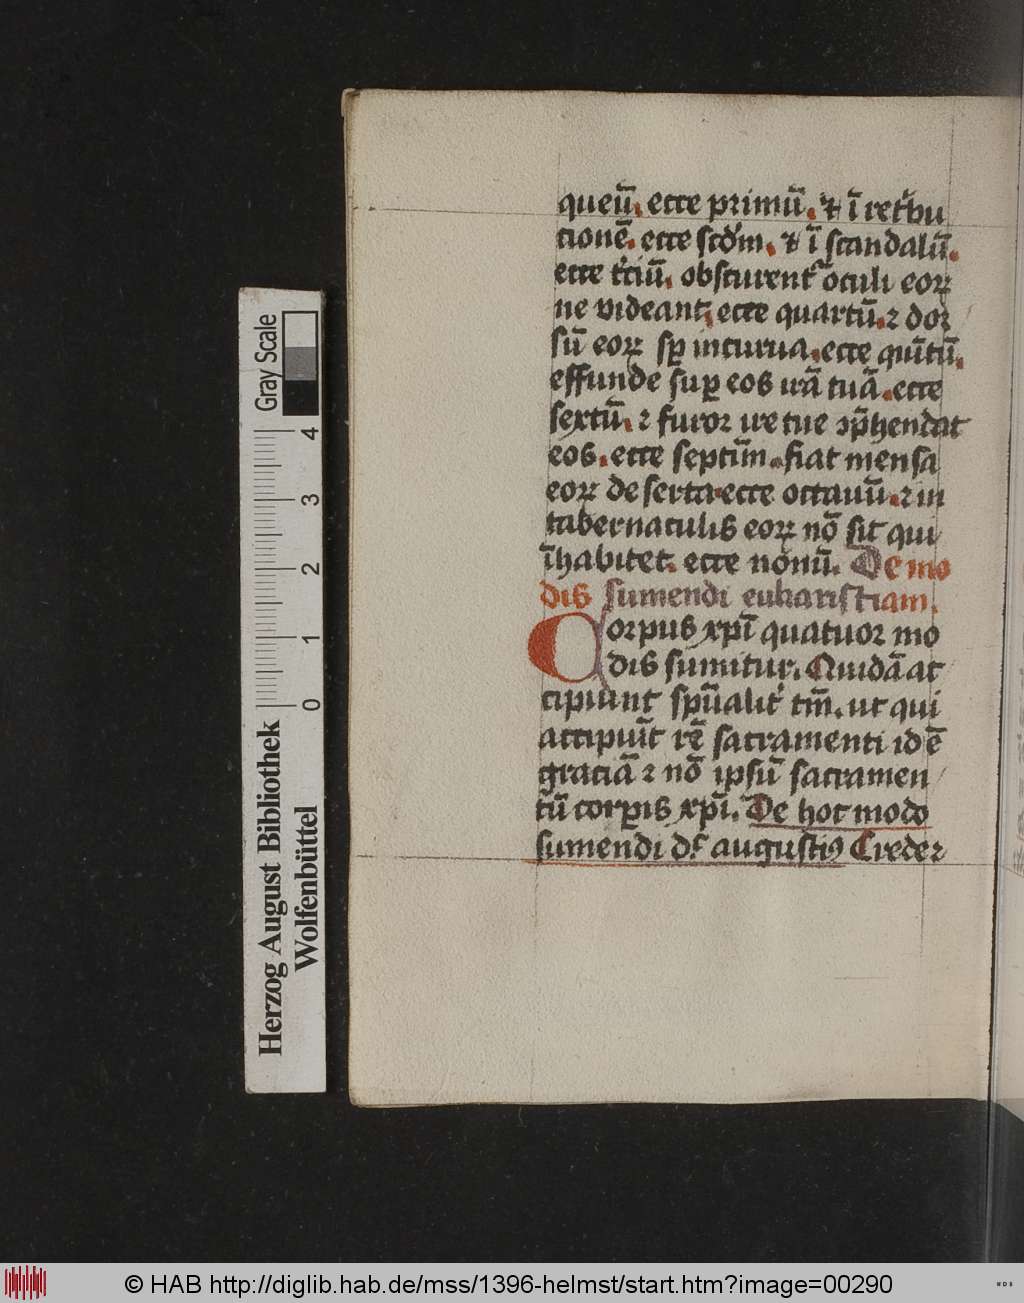 queū. ecce primū. ⁊ ī ret'bu
cionē. ecce scd'm. ⁊ ī scandalū.
ecce t'ciū. obscurent' oculi eoꝝ
ne videant. ecce quartū. ⁊ dor
sū eoꝝ sꝑ incurua. ecce quītū.
effunde suꝑ eos irā tuā. ecce
sextū. ⁊ furor ire tue ꝯp̄hendat
eos. ecce septim̄. fiat mensa
eoꝝ deserta. ecce octauū. ⁊ in
tabernaculis eoꝝ nō sit qui
īhabitet. ecce nonū. De mo
dis sumendi eukaristiam.
Corpus xp̄i quatuor mo
dis sumitur. Quidā ac
cipiunt sp̄ualit' tm̄. ut qui
accipiūt rē sacramenti id ē
graciā ⁊ nō ipsū sacramen
tū corꝑis xp̄i. De hoc modo
sumendi d't augustiꝰ Creder
Gray Scale
0 1 2 3 4
Herzog August Bibliothek
Wolfenbüttel
© HAB http://diglib.hab.de/mss/1396-helmst/start.htm?image=00290
WDB